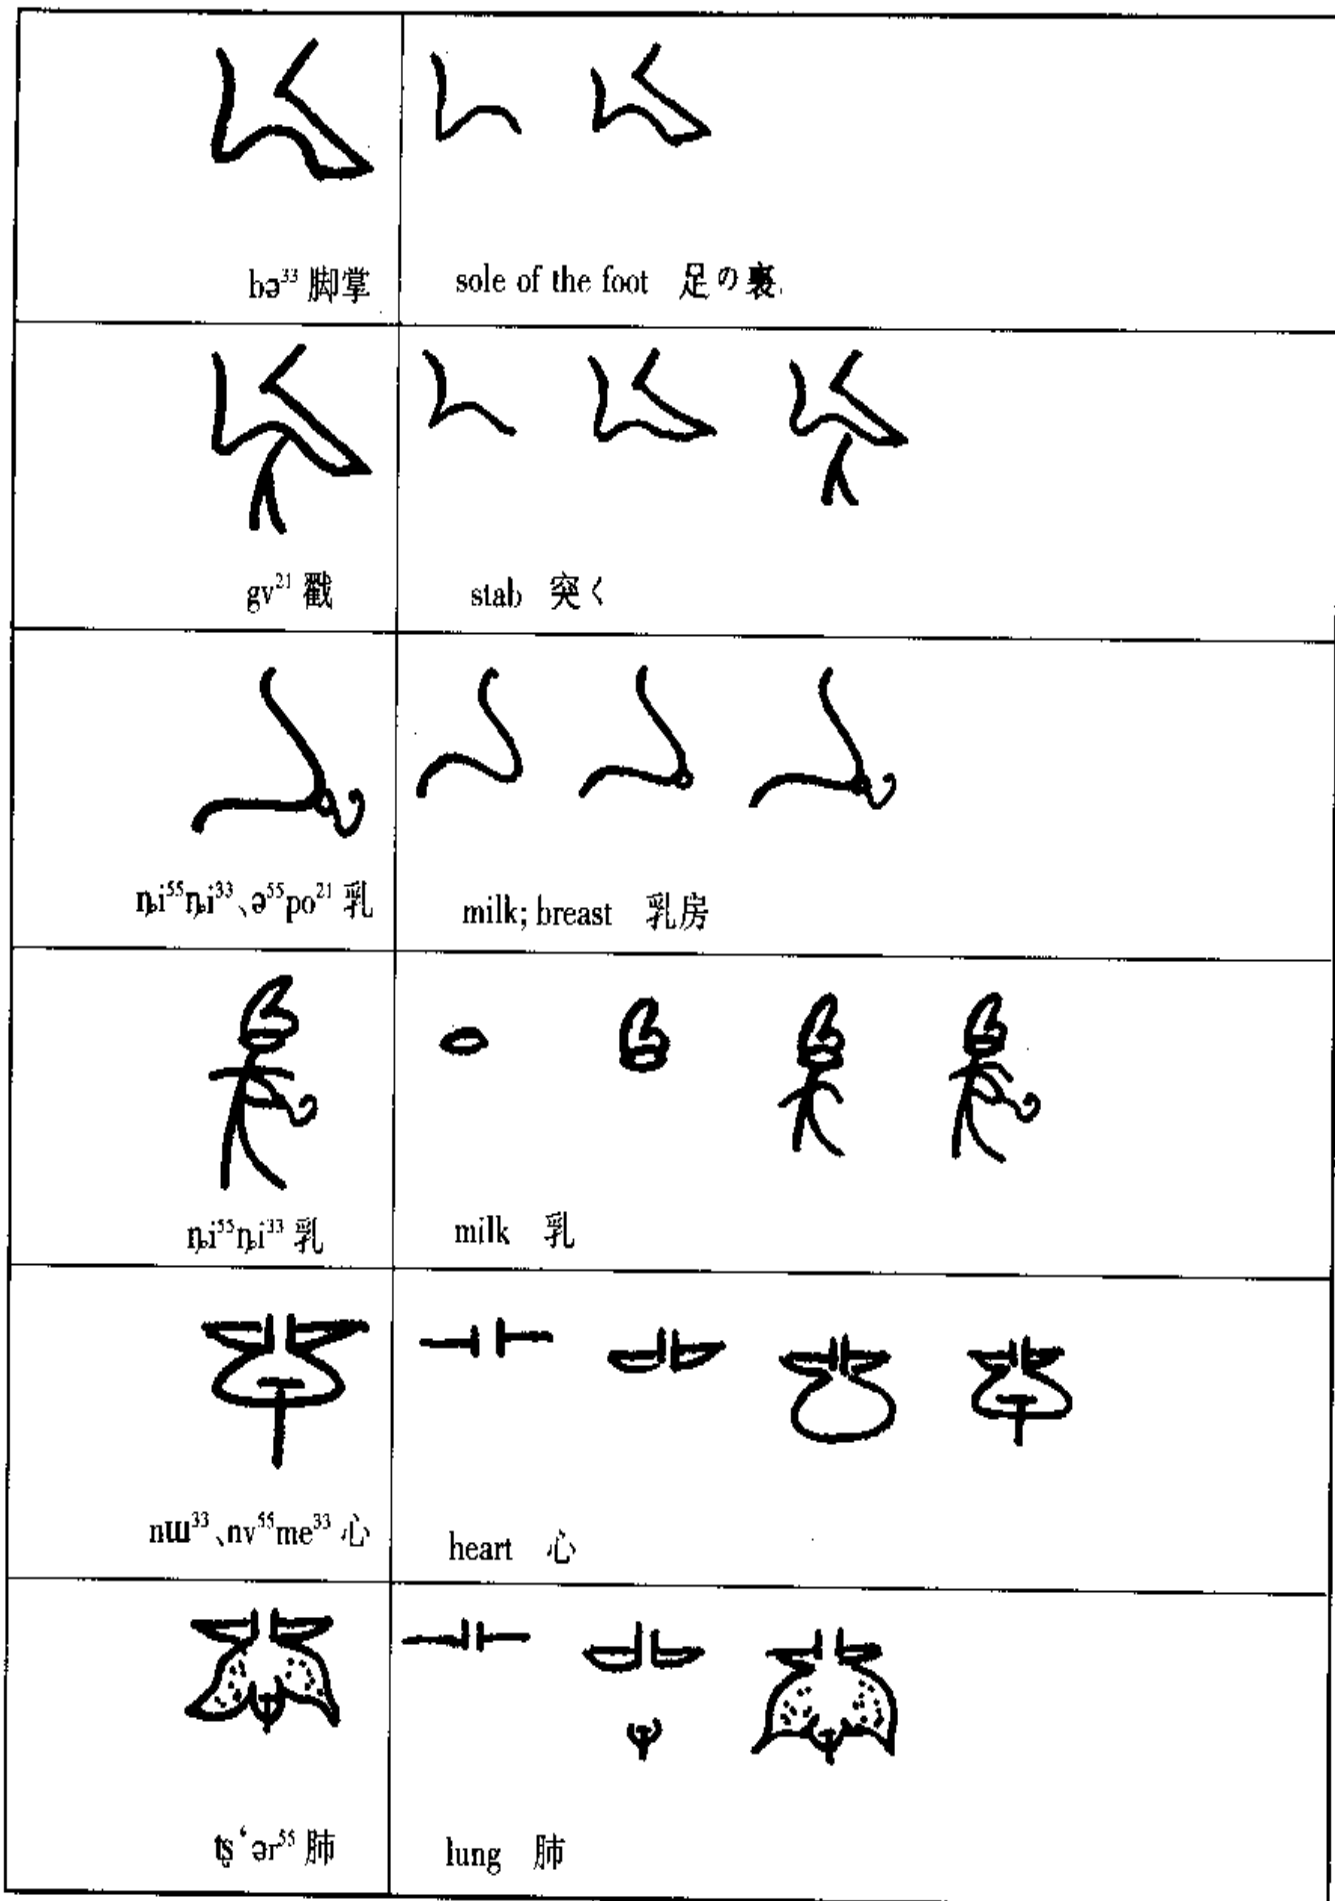 bə³³ 脚掌
sole of the foot 足の裏
gv²¹ 戳
stab 突く
ȵi⁵⁵ȵi³³、ə⁵⁵po²¹ 乳
milk; breast 乳房
ȵi⁵⁵ȵi³³ 乳
milk 乳
nɯ³³、nv⁵⁵me³³ 心
heart 心
tʂ‘ər⁵⁵ 肺
lung 肺